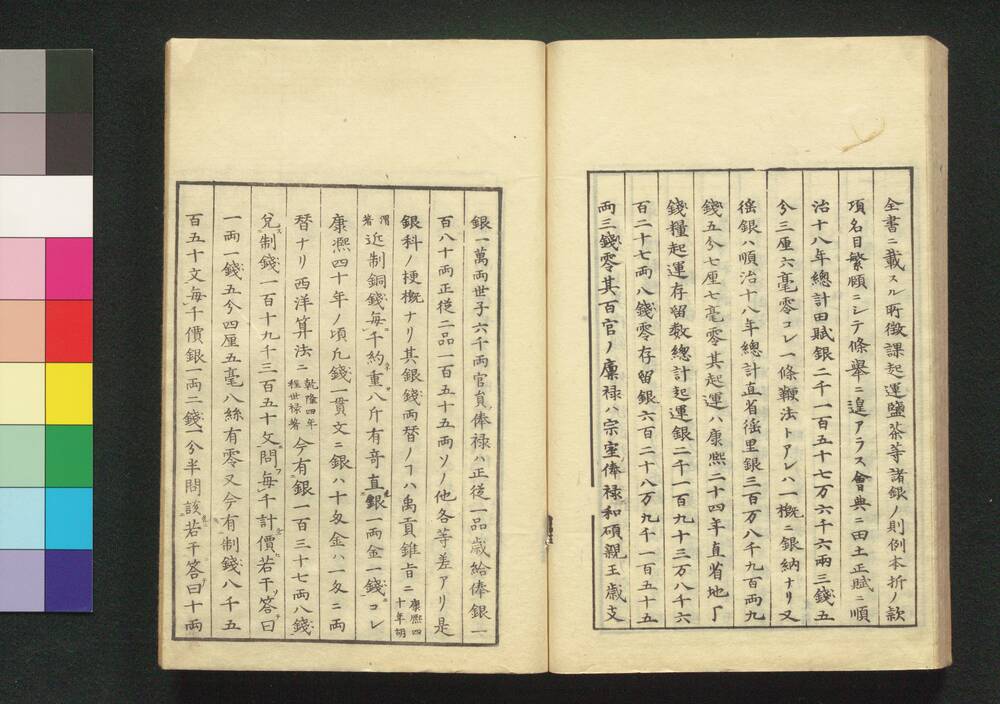 全書ニ載スル所徴課起運鹽茶等諸銀ノ則例本折ノ款
項名目繁頤ニシテ條舉ニ遑アラス會典ニ田土正賦ニ順
治十八年總計田賦銀二千一百五十七万六千六兩三錢五
分三厘六毫零コレ一條鞭法トアレハ一概ニ銀納ナリ又
徭銀ハ順治十八年總計直省徭里銀三百万八千九百兩九
錢五分七厘七毫零其起運ハ康熙二十四年直省地丁
錢糧起運存留数總計起運銀二千一百九十三万八千六
百二十七兩八錢零存留銀六百二十八万九千一百五十五
兩三錢零其百官ノ廩祿ハ宗室俸祿和碩親王歳支
銀一萬兩世子六千兩官員俸祿ハ正從一品歳給俸銀一
百八十兩正從二品一百五十五兩ソノ他各等差アリ是
銀科ノ梗概ナリ其銀錢両替ノフハ禹貢錐旨ニ康熙四十年胡
渭著近制銅錢毎千約重八斤有奇直銀一兩金一錢コレ
康熙四十年ノ頃凡錢一貫文ニ銀ハ十匁金ハ一匁ニ両
替ナリ西洋算法ニ乾隆四年程世祿著今有銀一百三十七兩八錢
兌制錢一百十九千三百五十文問毎千計價若干答曰
一兩一錢五分四厘五毫八絲有零又今有制錢八千五
百五十文毎千價銀一兩二錢一分半問該若干答曰十兩